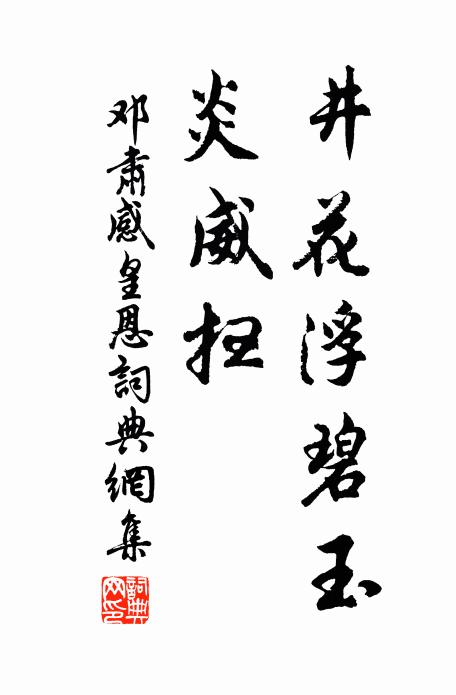 井花浮碧玉
炎威扫
邓肃感皇恩詞典網集
詞典网印